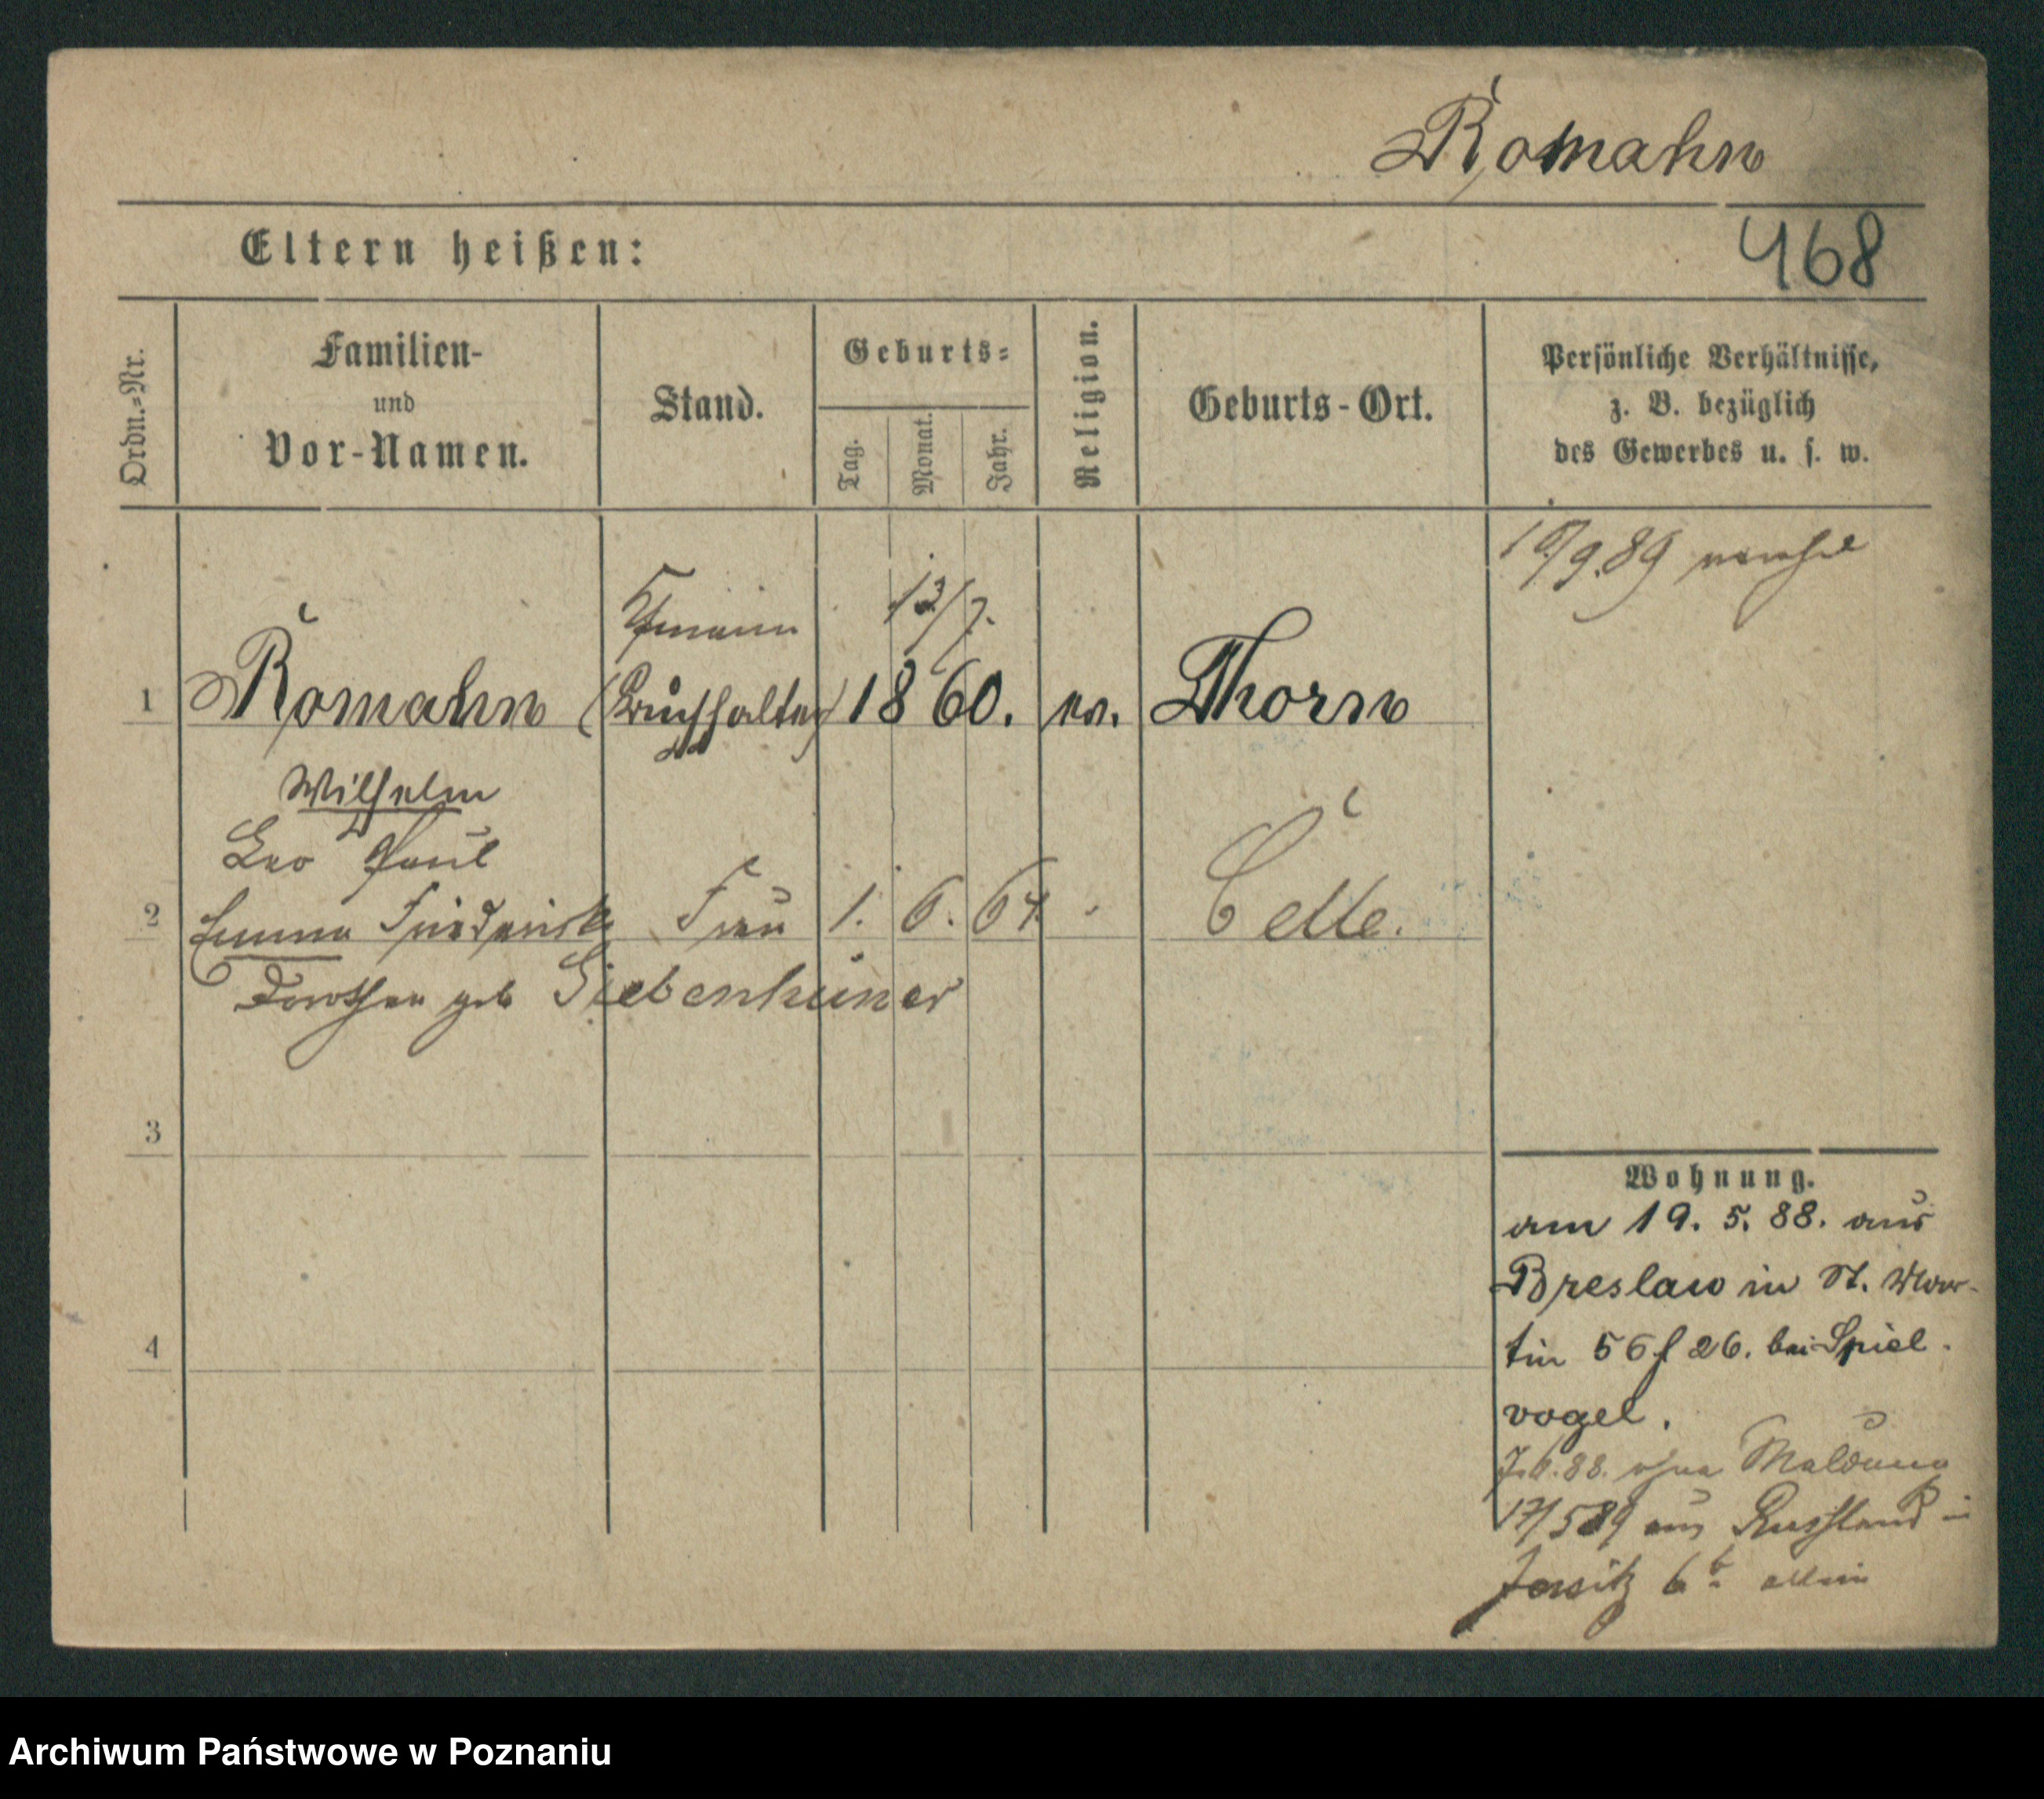 Romahn
468
Eltern heißen:
Ordn.=Nr.
Familien-
und
Vor-Namen.
Stand.
Geburts=
Tag.
Monat.
Jahr.
Religion.
Geburts-Ort.
Persönliche Verhältnisse,
z. B. bezüglich
des Gewerbes u. s. w.
Kfmann 13/7.
1 Romahn (Buchhalter) 1860. ev. Thorn
Wilhelm
Leo Paul
2 Emma Friederike Frau 1. 6. 64. Celle.
Dorothea geb Siebenhüner
3
4
Wohnung.
am 19. 5. 88. aus
Breslau in St. Mar-
tin 56 26. bei Spiel-
vogel.
88. ohne Meldung
17/5 89 aus Russland in
Jersitz 6 allein
Archiwum Państwowe w Poznaniu